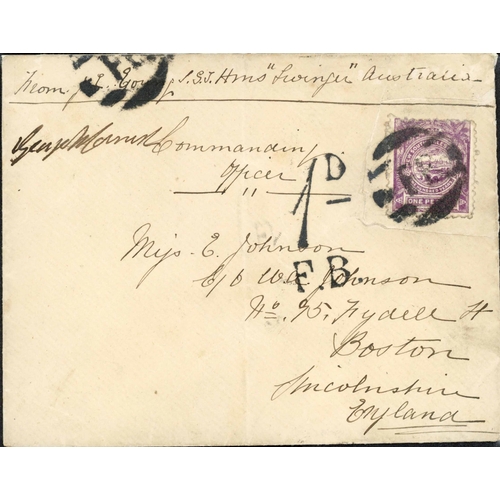 From J. Young S.G.I Hms "Swinger" Australia
Commanding
Officer
1D
F.B.
ONE PE
Miss E. Johnson
C/o W. Johnson
No. 95. Fydell St
Boston
Lincolnshire
England